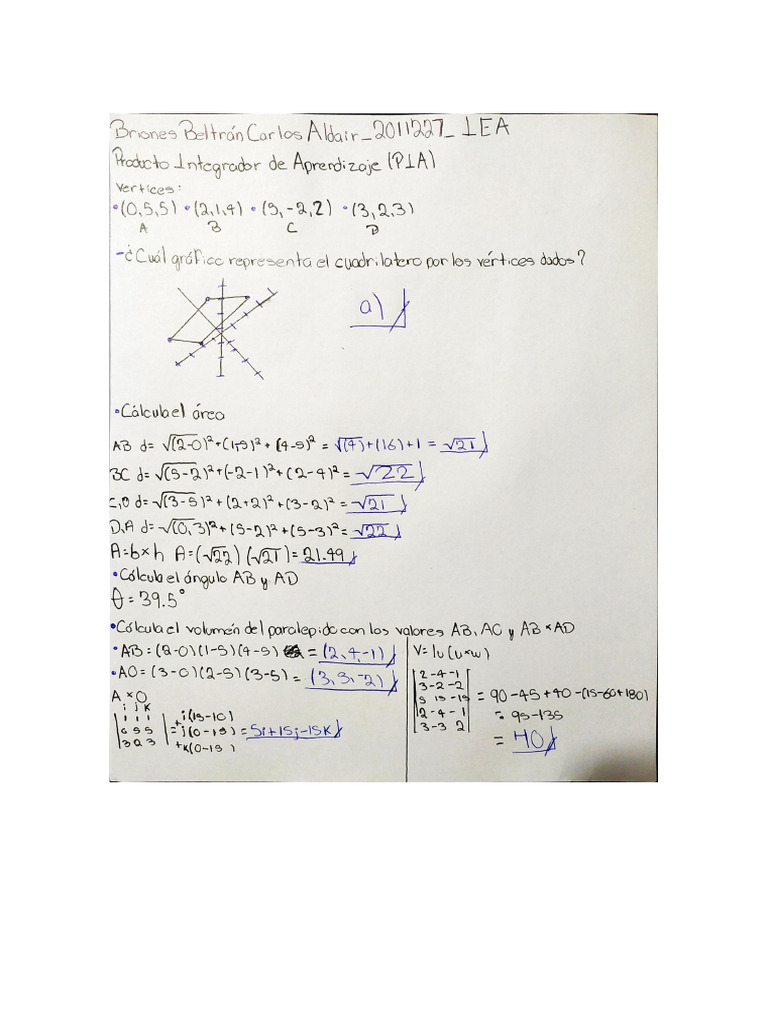 Briones Beltrán Carlos Aldair_2011227_IEA
Producto Integrador de Aprendizaje (PIA)
Vertices:
•(0,5,5) •(2,1,4) •(5,-2,2) •(3,2,3)
A B C D
-¿Cuál gráfico representa el cuadrilatero por los vértices dados?
a)
•Cálcula el área
AB d=√(2-0)²+(1,5)²+(4-5)²=√(4)+(16)+1=√21
BC d=√(5-2)²+(-2-1)²+(2-4)²=√22
C,D d=√(3-5)²+(2+2)²+(3-2)²=√21
D,A d=√(0,3)²+(5-2)²+(5-3)²=√22
A=b×h A=(√22)(√21)=21.49
•Cálcula el ángulo AB y AD
θ=39.5°
•Cálcula el volumén del paralepido con los valores AB, AC y AB×AD
•AB=(2-0)(1-5)(4-5) =(2,4,-1)
•AD=(3-0)(2-5)(3-5)=(3,3,-2)
A×D
i j k
i i i
0 5 5
3 2 3
=
+i(15-10)
j(0-15)
+k(0-15)
=5i+15j-15k
V=|u(u×w)
2-4-1
3-2-2
5 15-15
2-4-1
3-3 2
=90-45+40-(15-60+180)
=95-135
=40